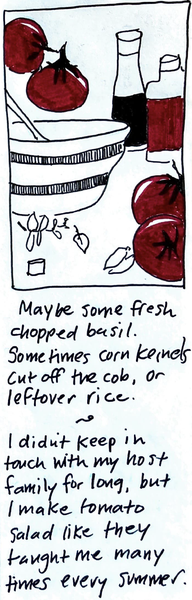 Maybe some fresh
chopped basil.
Sometimes corn kernels
cut off the cob, or
leftover rice.
~
I didn't keep in
touch with my host
family for long, but
I make tomato
salad like they
taught me many
times every summer.